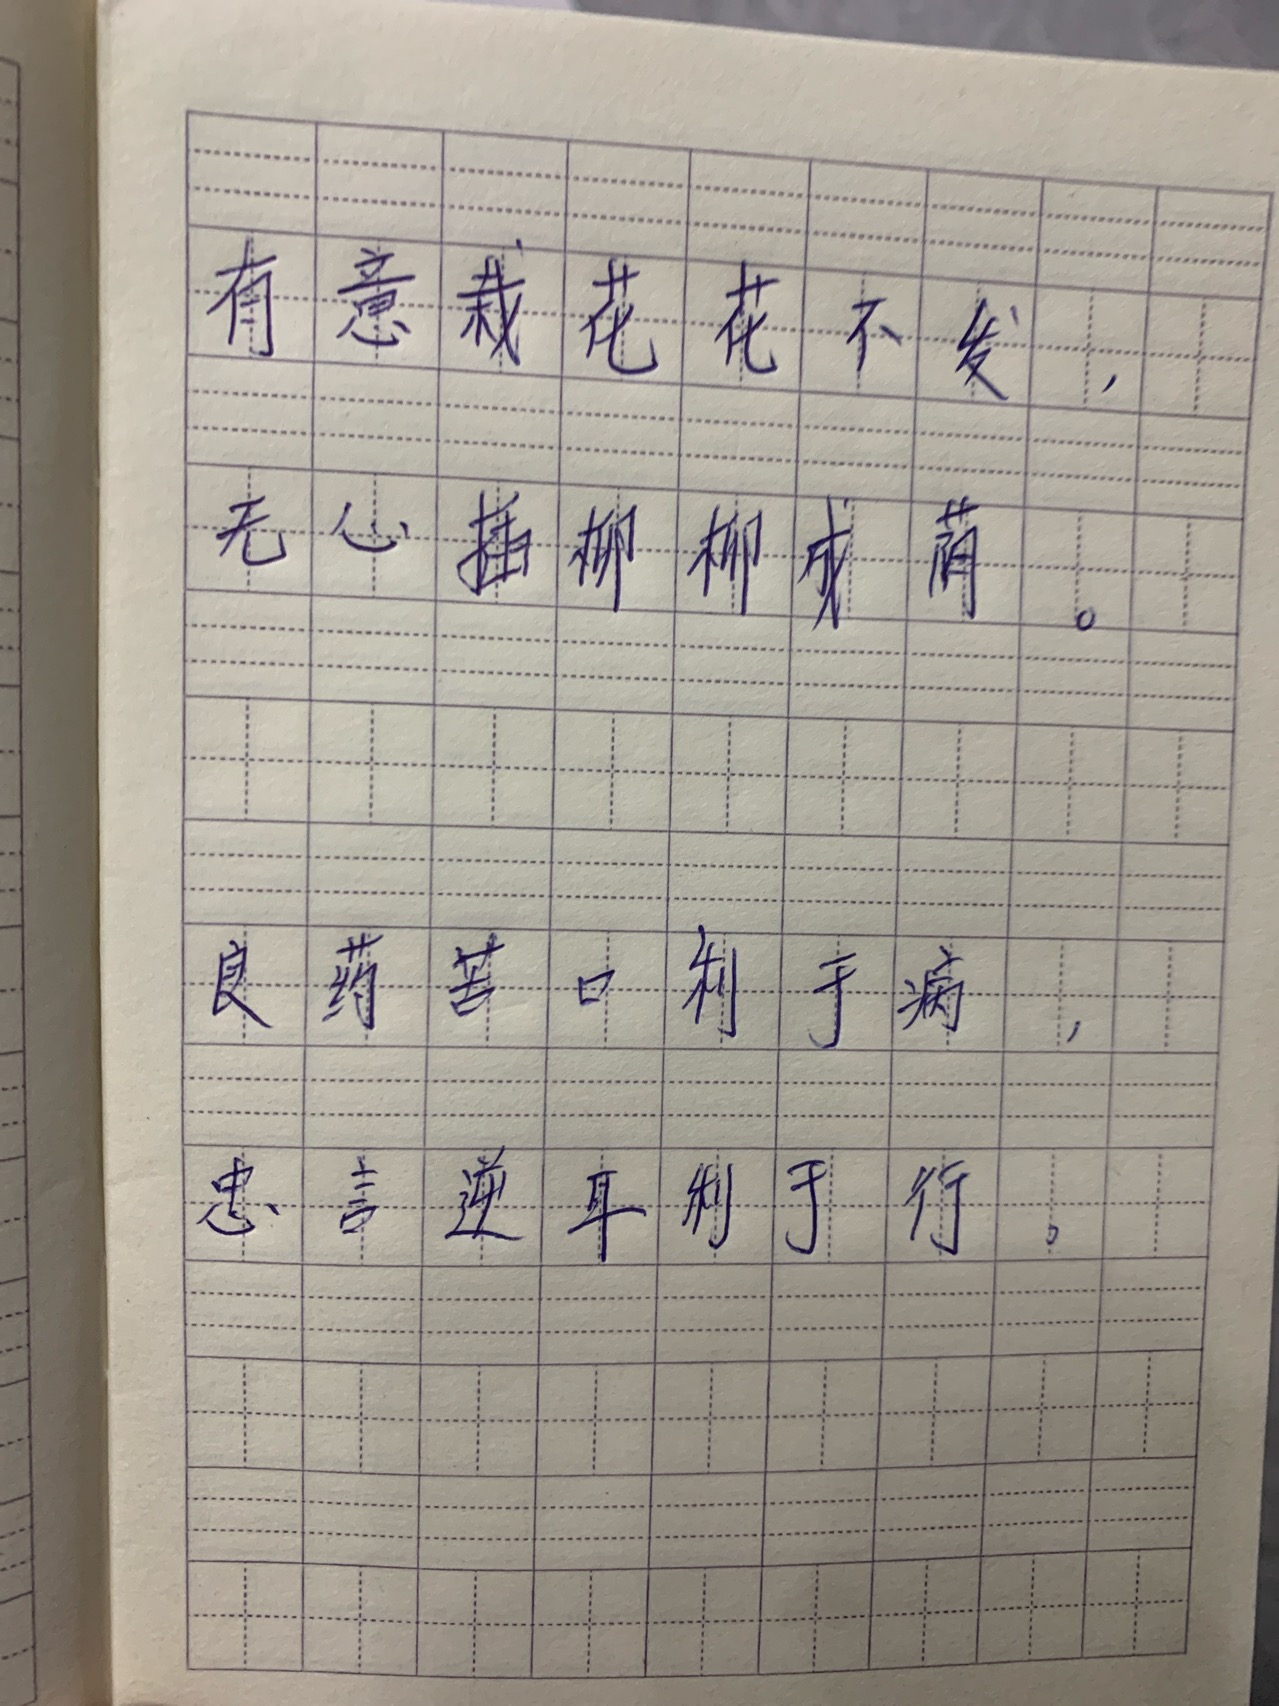 有意栽花花不发，
无心插柳柳成荫。
良药苦口利于病，
忠言逆耳利于行。